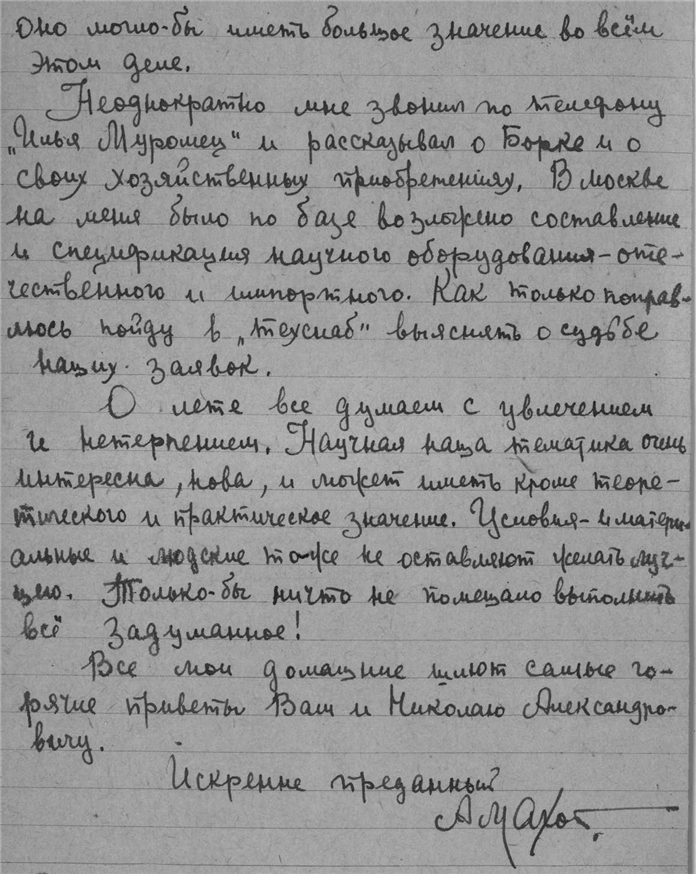 оно могло-бы иметь большое значение во всём
этом деле.
Неоднократно мне звонил по телефону
„Илья Муромец" и рассказывал о Борке и о
своих хозяйственных приобретениях. В Москве
на меня было по базе возложено составление
и спецификация научного оборудования – оте-
чественного и импортного. Как только поправ-
люсь пойду в „Техснаб" выяснять о судьбе
наших заявок.
О лете все думаем с увлечением
и нетерпением. Научная наша тематика очень
интересна, нова, и может иметь кроме теоре-
тического и практическое значение. Условия – и матери-
альные и людские тоже не оставляют желать луч-
шего. Только-бы ничто не помешало выполнить
всё задуманное!
Все мои домашние шлют самые го-
рячие приветы Вам и Николаю Александро-
вичу.
Искренне преданный